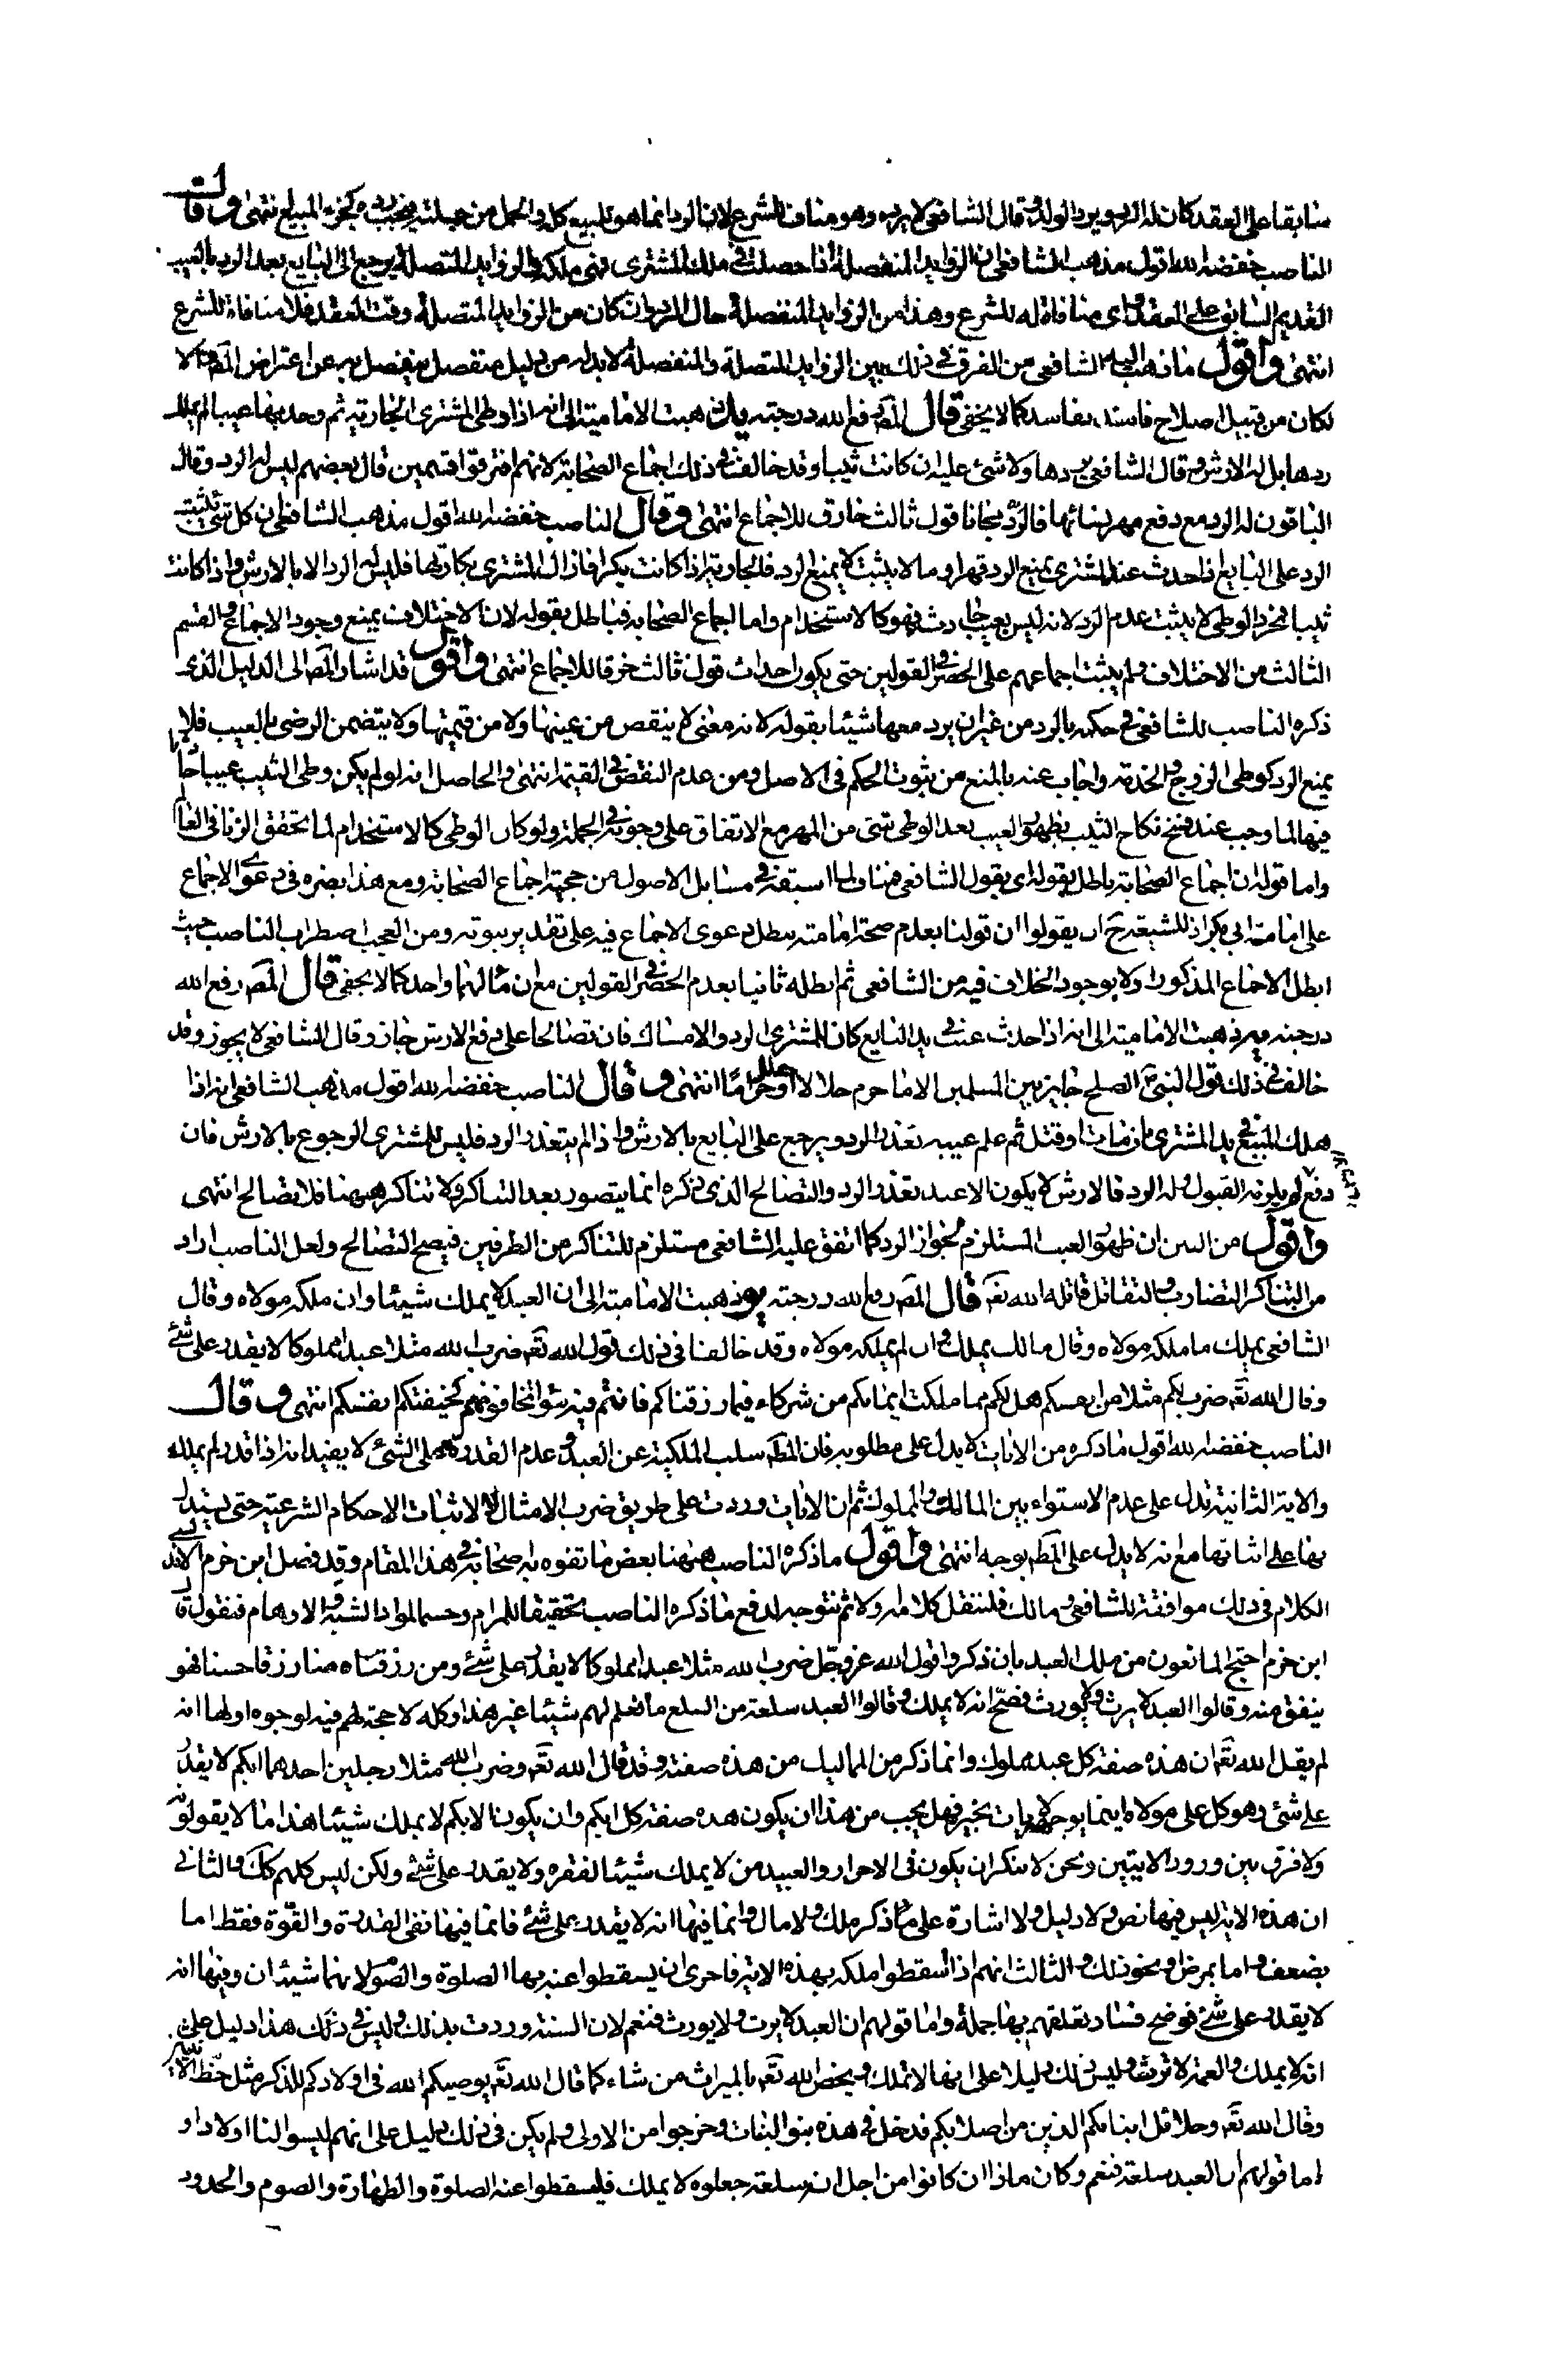 سابقا على العقد كان له الرد ويرد الولد وقال الشافعي لا يرده وهو مناف للشرع لان الرد انما هو للمبيع كله والحمل من جملته فيجب رده كجزء المبيع انتهى وقال
الناصب خفضه الله اقول مذهب الشافعي ان الزوايد المنفصلة اذا حصلت في ملك المشتري فهي ملكه والزوايد المتصلة يرجع الى البايع بعد الرد بالعيب
القديم السابق على العقد واى منافاة له للشرع وهذا من الزوايد المنفصلة حال الرد وان كان من الزوايد المتصلة وقت العقد فلا منافاة للشرع
انتهى واقول ما ذهب اليه الشافعي من الفرق في ذلك بين الزوايد المتصلة والمنفصلة لا بد له من دليل منفصل ينفصل به عن اعتراض المص والا
لكان من قبيل اصلاح فاسد بفاسد كما لا يخفى قال المص رفع الله درجته يد ذهبت الامامية الى انه اذا وطى المشتري الجارية ثم وجد بها عيبا لم يملك
ردها بل له الارش وقال الشافعي يردها ولا شئ عليه ان كانت ثيبا وقد خالف في ذلك اجماع الصحابة لانهم افترقوا قسمين قال بعضهم ليس له الرد وقال
الباقون له الرد مع دفع مهر نسائها فالرد مجانا قول ثالث خارق للاجماع انتهى وقال الناصب خفضه الله اقول مذهب الشافعي ان كل شئ يثبت
الرد على البايع اذا حدث عند المشتري يمنع الرد قهرا وما لا يثبت لا يمنع الرد فالجارية اذا كانت بكرا فازال المشتري بكارتها فليس له الرد الا بالارش واذا كانت
ثيبا فمجرد الوطى لا يثبت عدم الرد لانه ليس بعيب حادث فهو كالاستخدام واما اجماع الصحابه فباطل بقوله لان الاختلاف يمنع وجود الاجماع والقسم
الثالث من الاختلاف ولم يثبت اجماعهم على الحصر في القولين حتى يكون احداث قول ثالث خرقا للاجماع انتهى واقول قد اشار المص الى الدليل الذى
ذكره الناصب للشافعي في حكمه بالرد من غير ان يرد معها شيئا بقوله لانه معنى لا ينقص من عينها ولا من قيمتها ولا يتضمن الرضى بالعيب فلا
يمنع الرد كوطى الزوج والخدمة واجاب عنه بالمنع من ثبوت الحكم في الاصل ومن عدم النقص في القيمة انتهى والحاصل انه لو لم يكن وطى الثيب عيبا
فيها لما وجب عند فسخ نكاح الثيب بظهور العيب بعد الوطى شئ من المهر مع الاتفاق على وجوبه في الجملة ولو كان الوطى كالاستخدام لما تحقق الزنا في
واما قوله ان اجماع الصحابة باطل بقوله اى بقول الشافعي فمناف لما اسبقه في مسايل الاصول من حجية اجماع الصحابة ومع هذا يضره في دعوى الاجماع
على امامة ابي بكر اذ للشيعة ح ان يقولوا ان قولنا بعدم صحة امامته يبطل دعوى الاجماع فيه على تقدير ثبوته ومن العجب اضطراب الناصب حيث
ابطل الاجماع المذكور اولا بوجود الخلاف فيه من الشافعي ثم ابطله ثانيا بعدم الحصر في القولين مع ان مالهما واحد كما لا يخفى قال المص رفع الله
درجته يه ذهبت الامامية الى انه اذا حدث عيب في يد البايع كان للمشتري الرد والامساك فان تصالحا على دفع الارش جاز وقال الشافعي لا يجوز وقد
خالف في ذلك قول النبي ص الصلح جايز بين المسلمين الا ما حرم حلالا او حلل حراما انتهى وقال الناصب خفضه الله اقول مذهب الشافعي انه اذا
هلك المبيع في يد المشتري بان مات او قتل ثم علم عيبه تعذر الرد ويرجع على البايع بالارش واذا لم يتعذر الرد فليس للمشتري الرجوع بالارش فان
دفع لم يلزمه القبول وله الرد فالارش لا يكون الا عند تعذر الرد والتصالح الذي ذكره انما يتصور بعد التناكر ولا تناكر ههنا فلا تصالح انتهى
واقول من البين ان ظهور العيب المستلزم لجواز الرد كما اتفق عليه الشافعي مستلزم للتناكر من الطرفين فيصح التصالح ولعل الناصب اراد
من التناكر التضارب والتقاتل قاتله الله تع قال المص رفع الله درجته يو ذهبت الامامية الى ان العبد لا يملك شيئا وان ملكه مولاه وقال
الشافعي يملك ما ملكه مولاه وقال مالك يملك وان لم يملكه مولاه وقد خالفا في ذلك قول الله تع ضرب الله مثلا عبدا مملوكا لا يقدر على شئ
وقال الله تع ضرب لكم مثلا من انفسكم هل لكم مما ملكت ايمانكم من شركاء فيما رزقناكم فانتم فيه سواء تخافونهم كخيفتكم انفسكم انتهى وقال
الناصب خفضه الله اقول ما ذكره من الايات لا يدل على مطلوبه فان المط سلب الملكية عن العبد وعدم القدرة على الشئ لا يفيد انه اذا قدر لم يملك
والاية الثانية تدل على عدم الاستواء بين المالك والمملوك ثم ان الايات وردت على طريق ضرب الامثال لا لاثبات الاحكام الشرعية حتى يستدل
بها على اثباتها مع انه لا يدل على المط بوجه انتهى واقول ما ذكره الناصب ههنا بعض ما تفوه به اصحابه في هذا المقام وقد فصل ابن حزم الاندلسي
الكلام في ذلك موافقة للشافعي ومالك فلننقل كلامه اولا ثم نتوجه لدفع ما ذكره الناصب تحقيقا للمرام وحسما لمواد الشبه والاوهام فنقول قال
ابن حزم احتج المانعون من ملك العبد بان ذكروا قول الله عز وجل ضرب الله مثلا عبدا مملوكا لا يقدر على شئ ومن رزقناه منا رزقا حسنا فهو
ينفق منه وقالوا العبد لا يرث ولا يورث فصح انه لا يملك وقالوا العبد سلعة من السلع ما نعلم لهم شيئا غير هذا وكله لا حجة لهم فيه لوجوه اولها انه
لم يقل الله تع ان هذه صفة كل عبد مملوك وانما ذكر من المماليك من هذه صفته وقد قال الله تع وضرب الله مثلا رجلين احدهما ابكم لا يقدر
على شئ وهو كل على مولاه اينما يوجهه لا يات بخير فهل يجب من هذا ان يكون هذه صفة كل ابكم وان يكون الابكم لا يملك شيئا هذا ما لا يقولونه
ولا فرق بين ورود الايتين ونحن لا ننكر ان يكون في الاحرار والعبيد من لا يملك شيئا لفقره ولا يقدر على شئ ولكن ليس كلهم كك والثاني
ان هذه الاية ليس فيها نص ولا دليل ولا اشارة على ما ذكر ملك ولا مال وانما فيها انه لا يقدر على شئ فانما فيها نفى القدرة والقوة فقط اما
بضعف واما بمرض ونحو ذلك والثالث انهم اذا اسقطوا ملكه بهذه الاية فاحرى ان يسقطوا عنه بها الصلوة والصوم لانهما شيئان وفيها انه
لا يقدر على شئ فوضح فساد تعلقهم بها جملة واما قولهم ان العبد لا يرث ولا يورث فنعم لان السنة وردت بذلك وليس في ذلك هذا دليل على
انه لا يملك والعمة لا ترث وليس ذلك دليلا على انها لا تملك ويخص الله تع بالميراث من شاء كما قال الله تع يوصيكم الله في اولادكم للذكر مثل حظ الانثيين
وقال الله تع وحلائل ابنائكم الذين من اصلابكم فدخل في هذه بنو البنات وخرجوا من الاولى ولم يكن في ذلك دليل على انهم ليسوا لنا اولادا و
اما قولهم ان العبد سلعة فنعم وكان ماذا ان كانوا من اجل انه سلعة جعلوه لا يملك فليسقطوا عنه الصلوة والطهارة والصوم والحدود